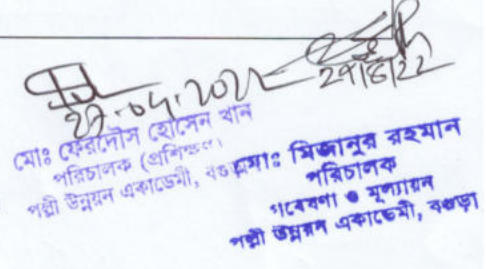 27.04.2022
মোঃ ফেরদৌস হোসেন খান
পরিচালক (প্রশিক্ষণ)
পল্লী উন্নয়ন একাডেমী, বগুড়া
মোঃ মিজানুর রহমান
পরিচালক
গবেষণা ও মূল্যায়ন
পল্লী উন্নয়ন একাডেমী, বগুড়া